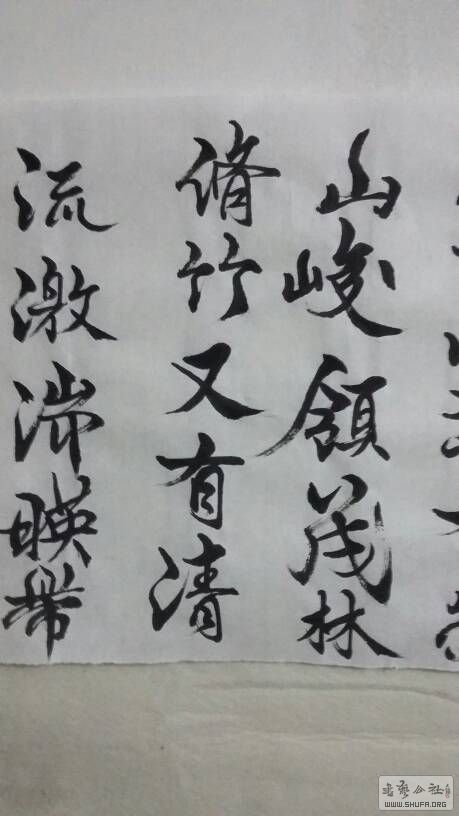 山峻領茂林
脩竹又有清
流激湍暎帶
書艺公社
WWW.SHUFA.ORG